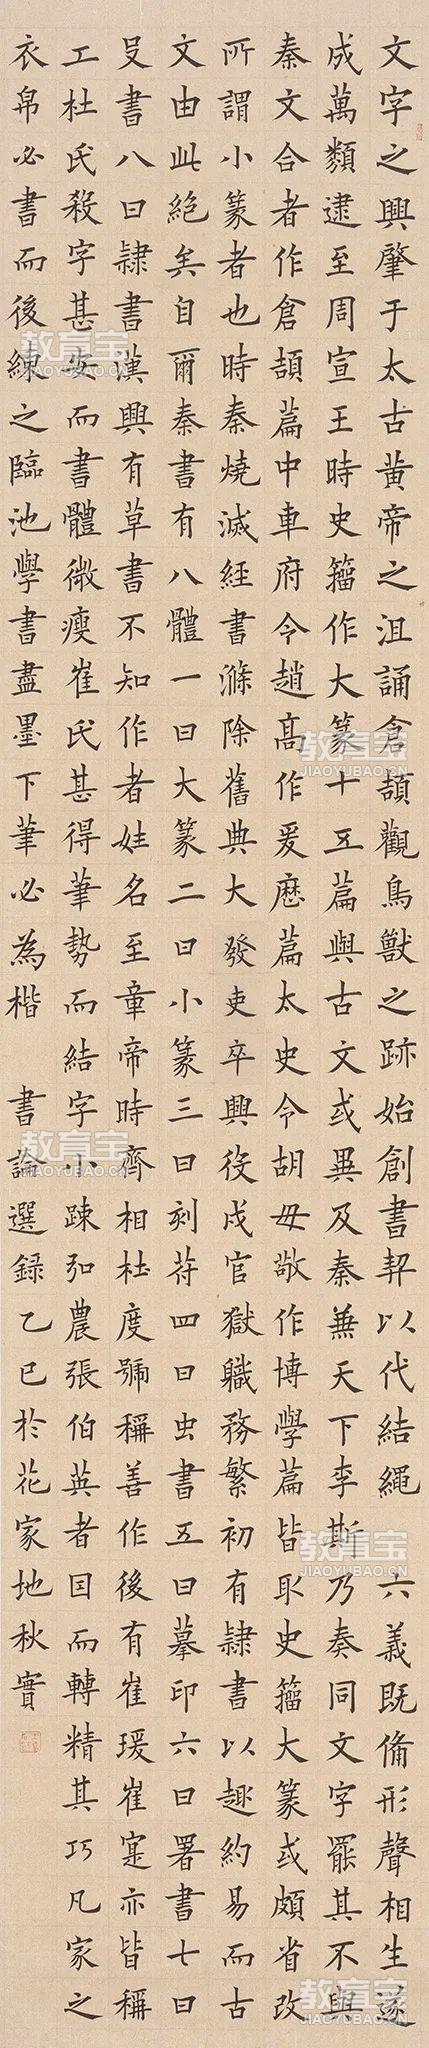 文字之興肇于太古黄帝之沮誦倉頡觀鳥獸之跡始創書契以代結繩 六義既備形聲相生遂
成萬類逮至周宣王時史籀作大篆十五篇與古文或異及秦兼天下李斯乃奏同文字罷其不與
秦文合者作倉頡篇中車府令趙髙作爰歷篇太史令胡毋敬作博學篇皆取史籀大篆或頗省改
所謂小篆者也時秦燒滅經書滌除舊典大發吏卒興役戍官獄職務繁初有隸書以趣約易而古
文由此絕矣自爾秦書有八體一曰大篆二曰小篆三曰刻符四曰虫書五曰摹印六曰署書七曰
殳書八曰隸書漢興有草書不知作者姓名至章帝時齊相杜度號稱善作後有崔瑗崔寔亦皆稱
工杜氏殺字甚安而書體微瘦崔氏甚得筆勢而結字小疎弘農張伯英者因而轉精其巧凡家之
衣帛必書而後練之臨池學書盡墨下筆必為楷 書論選録乙巳於花家地秋實
教育宝
JIAOYUBAO.CN
教育宝
JIAOYUBAO.CN
教育宝
JIAOYUBAO.CN
教育宝
JIAOYUBAO.CN
教育宝
JIAOYUBAO.CN
教育宝
JIAOYUBAO.CN